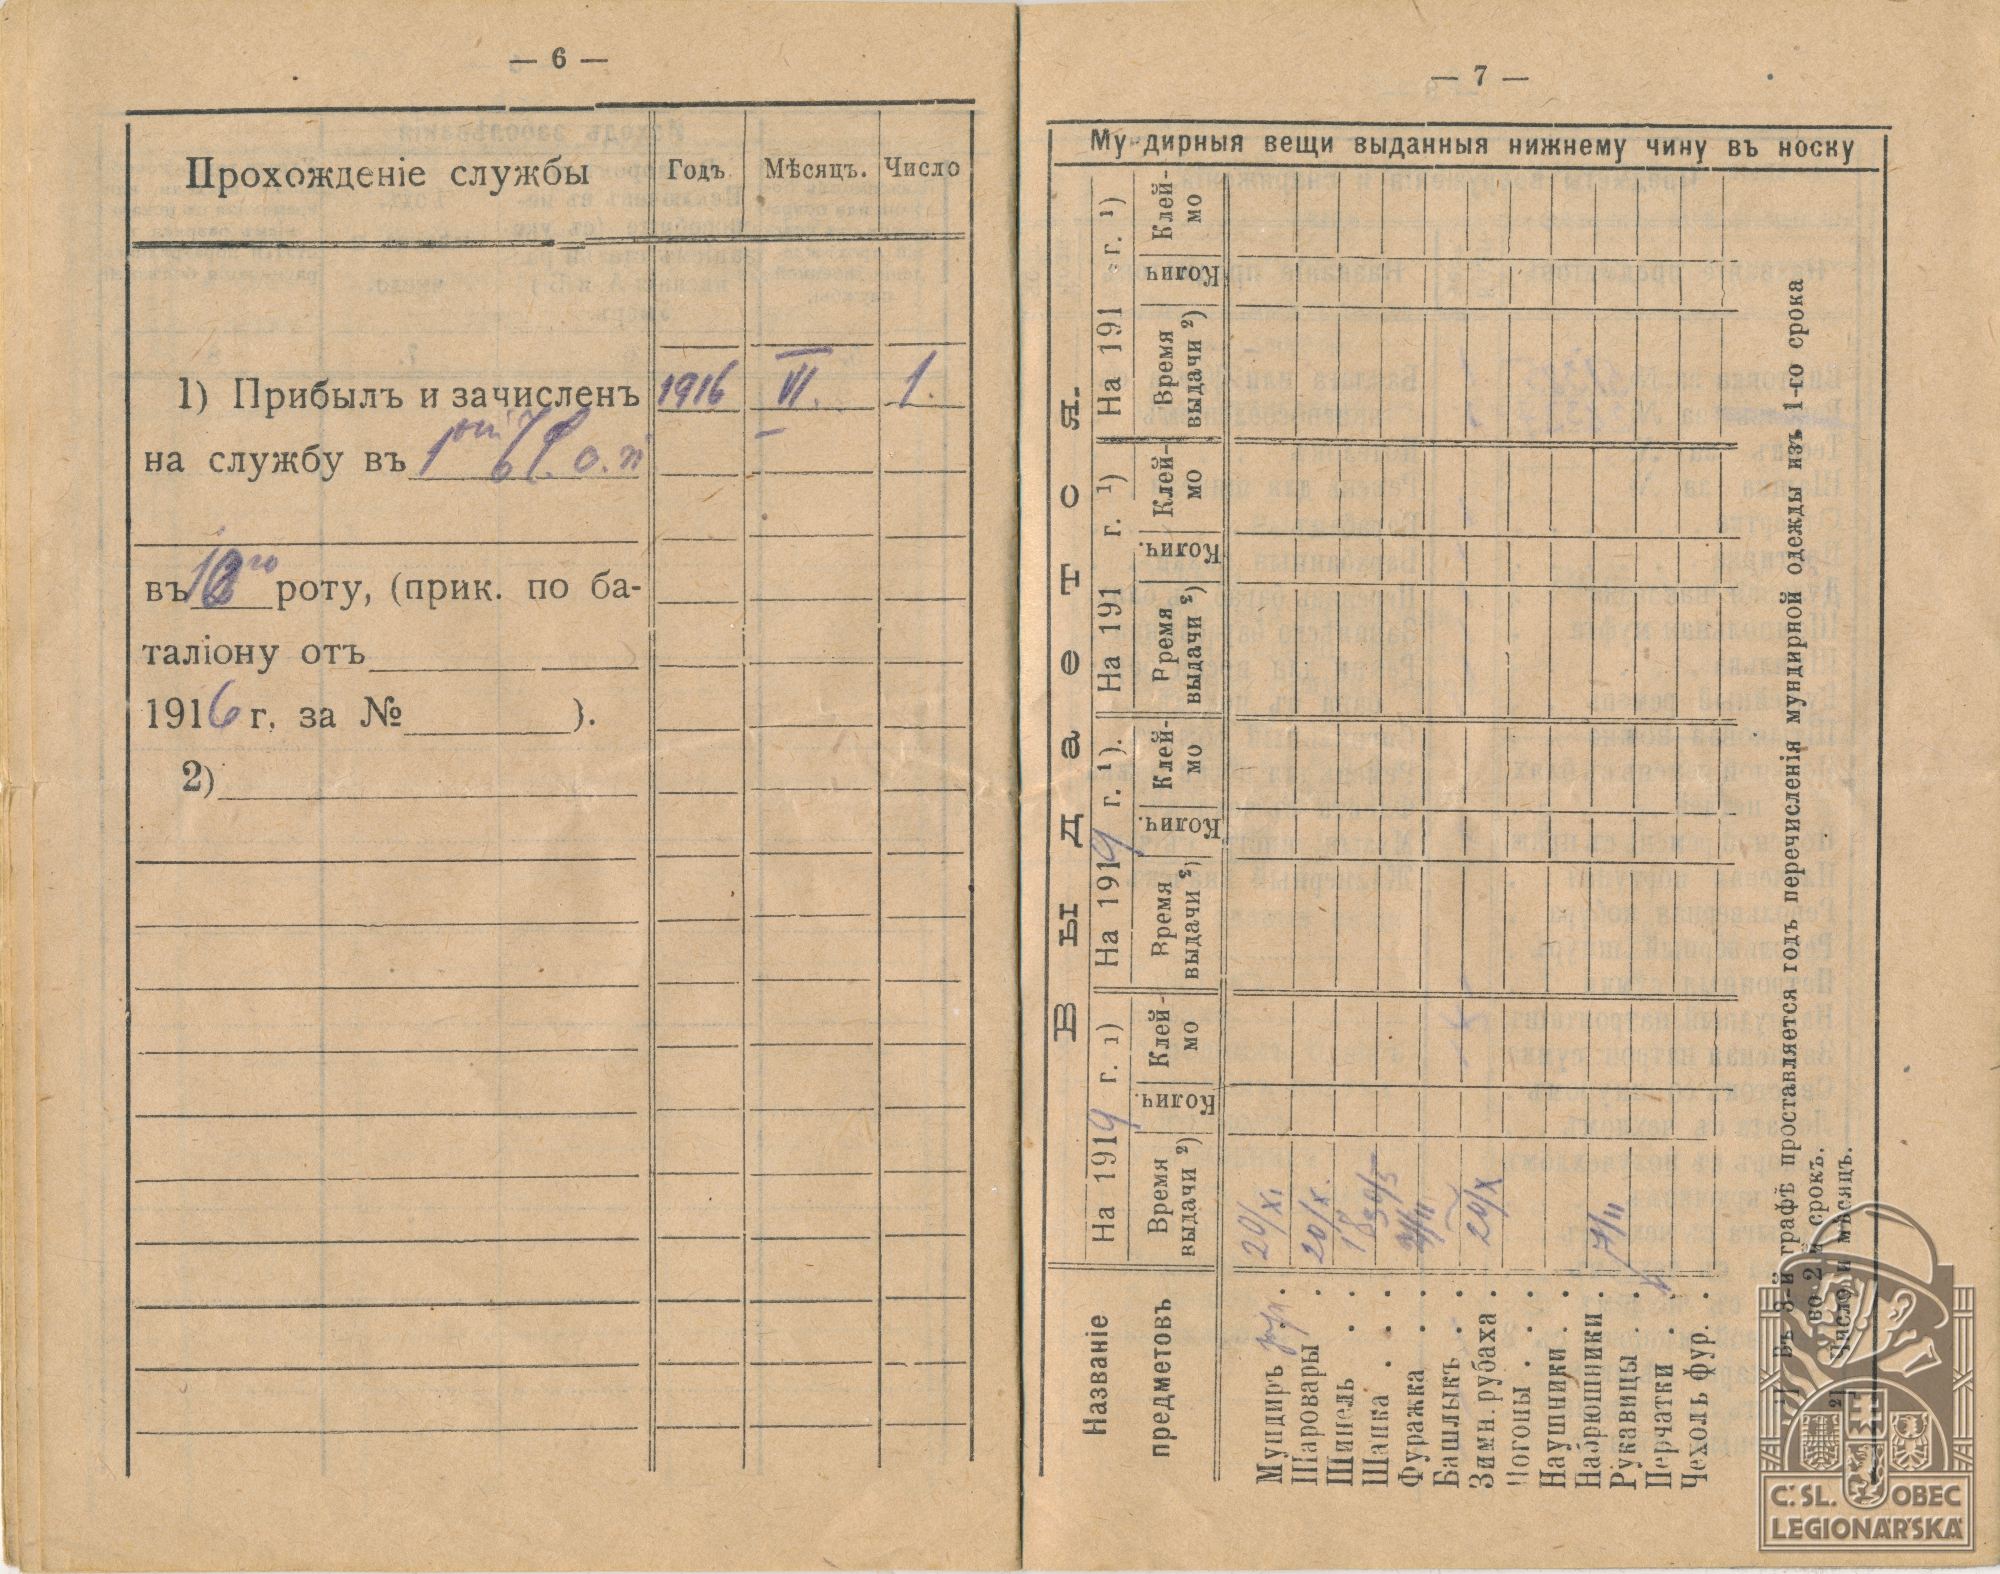 — 6 —
Прохожденіе службы
Годъ.
Мѣсяцъ.
Число
1) Прибылъ и зачисленъ
1916 VI. 1.
на службу въ
въ роту, (прик. по ба-
таліону отъ
1916 г. за №           ).
2)
— 7 —
Мундирныя вещи выданныя нижнему чину въ носку
Выдается.
Названіе предметовъ
На 1919 г. ¹)
Время выдачи ²)
Колич.
Клей-
мо
На 1919 г. ¹).
Время выдачи ²)
Колич.
Клей-
мо
На 191 г. ¹)
Время выдачи ²)
Колич.
Клей-
мо
На 191 г. ¹)
Время выдачи ²)
Колич
Клей-
мо
Мундиръ . 20/XI
Шаровары . 20/X.
Шинель . .
Шапка . . .
Фуражка . .
Башлыкъ . .
Зимн. рубаха . 20/X
Погоны . . .
Наушники . .
Набрюшники . 7/II
Рукавицы . .
Перчатки . .
Чехолъ фур. .
¹) Въ 3-й графѣ проставляется годъ перечисленія мундирной одежды изъ 1-го срока
во 2-й срокъ.
²) Число и мѣсяцъ.
Č. SL. OBEC
LEGIONÁŘSKÁ